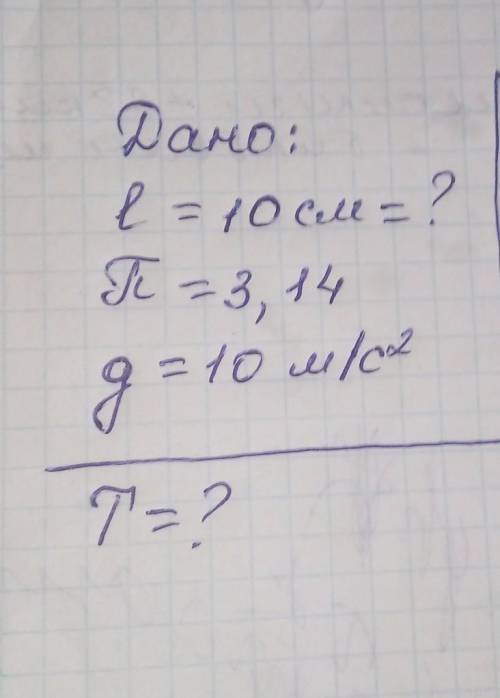 Дано:
l = 10 см = ?
π = 3,14
g = 10 м/с²
T = ?